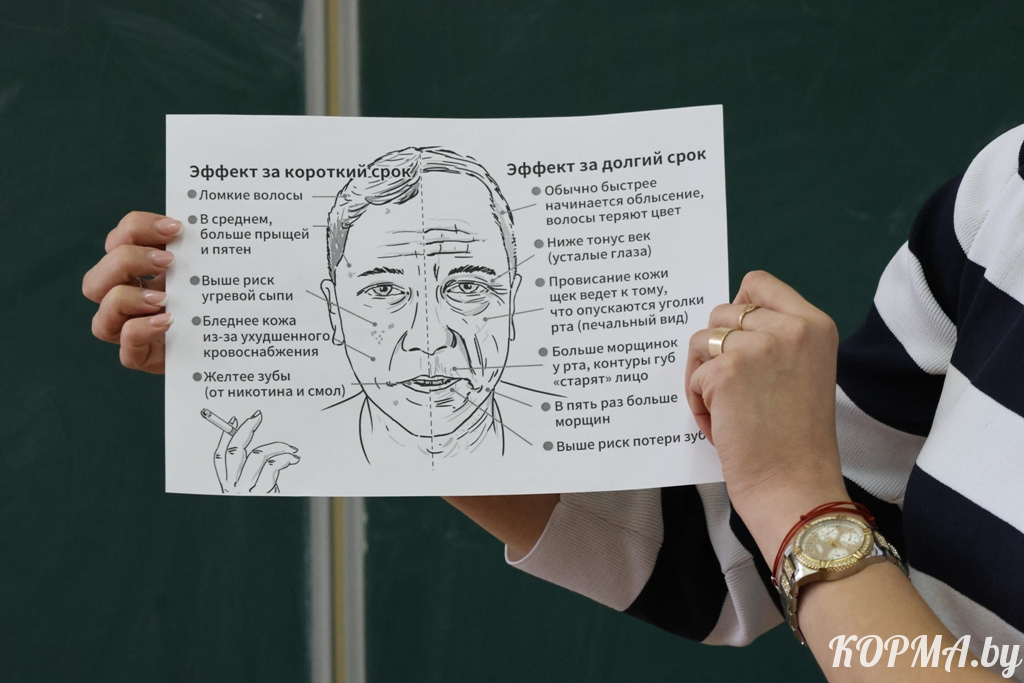 Эффект за короткий срок
Ломкие волосы
В среднем,
больше прыщей
и пятен
Выше риск
угревой сыпи
Бледнее кожа
из-за ухудшенного
кровоснабжения
Желтее зубы
(от никотина и смол)
Эффект за долгий срок
Обычно быстрее
начинается облысение,
волосы теряют цвет
Ниже тонус век
(усталые глаза)
Провисание кожи
щек ведет к тому,
что опускаются уголки
рта (печальный вид)
Больше морщинок
у рта, контуры губ
«старят» лицо
В пять раз больше
морщин
Выше риск потери зуб
КОРМА.by